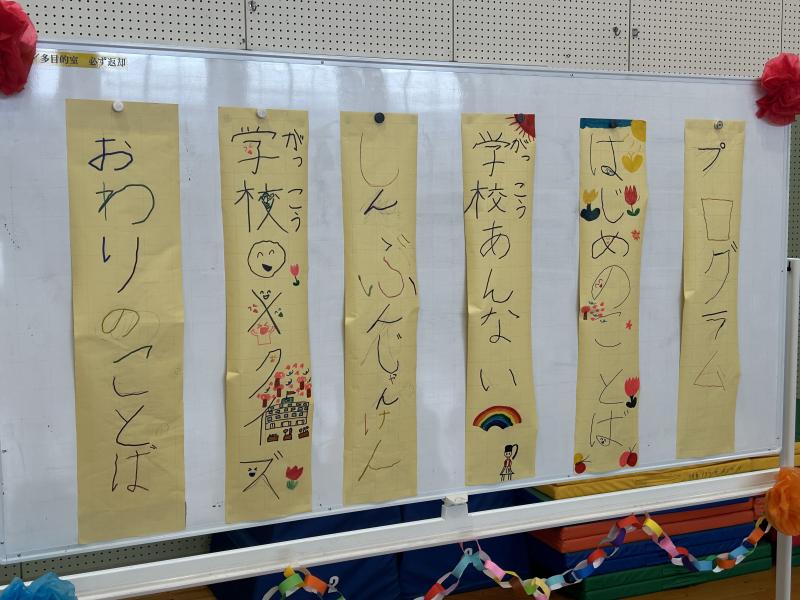 多目的室 必ず返却
プログラム
はじめのことば
がっこう
学校あんない
しんぶんじゃんけん
がっこう
学校○×クイズ
おわりのことば